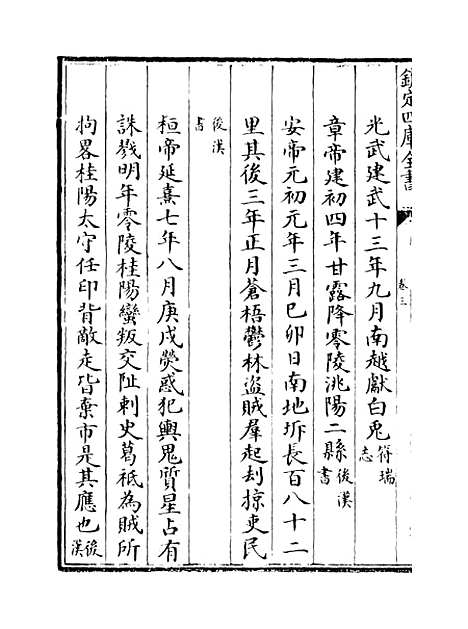 欽定四庫全書
卷三
光武建武十三年九月南越獻白兎符瑞志
章帝建初四年甘露降零陵洮陽二縣後漢書
安帝元初元年三月己卯日南地坼長百八十二
里其後三年正月蒼梧鬱林盜賊羣起刦掠吏民
後漢書
桓帝延熹七年八月庚戌熒惑犯輿鬼質星占有
誅戮明年零陵桂陽蠻叛交阯刺史葛祗為賊所
拘畧桂陽太守任印背敵走皆棄市是其應也後漢